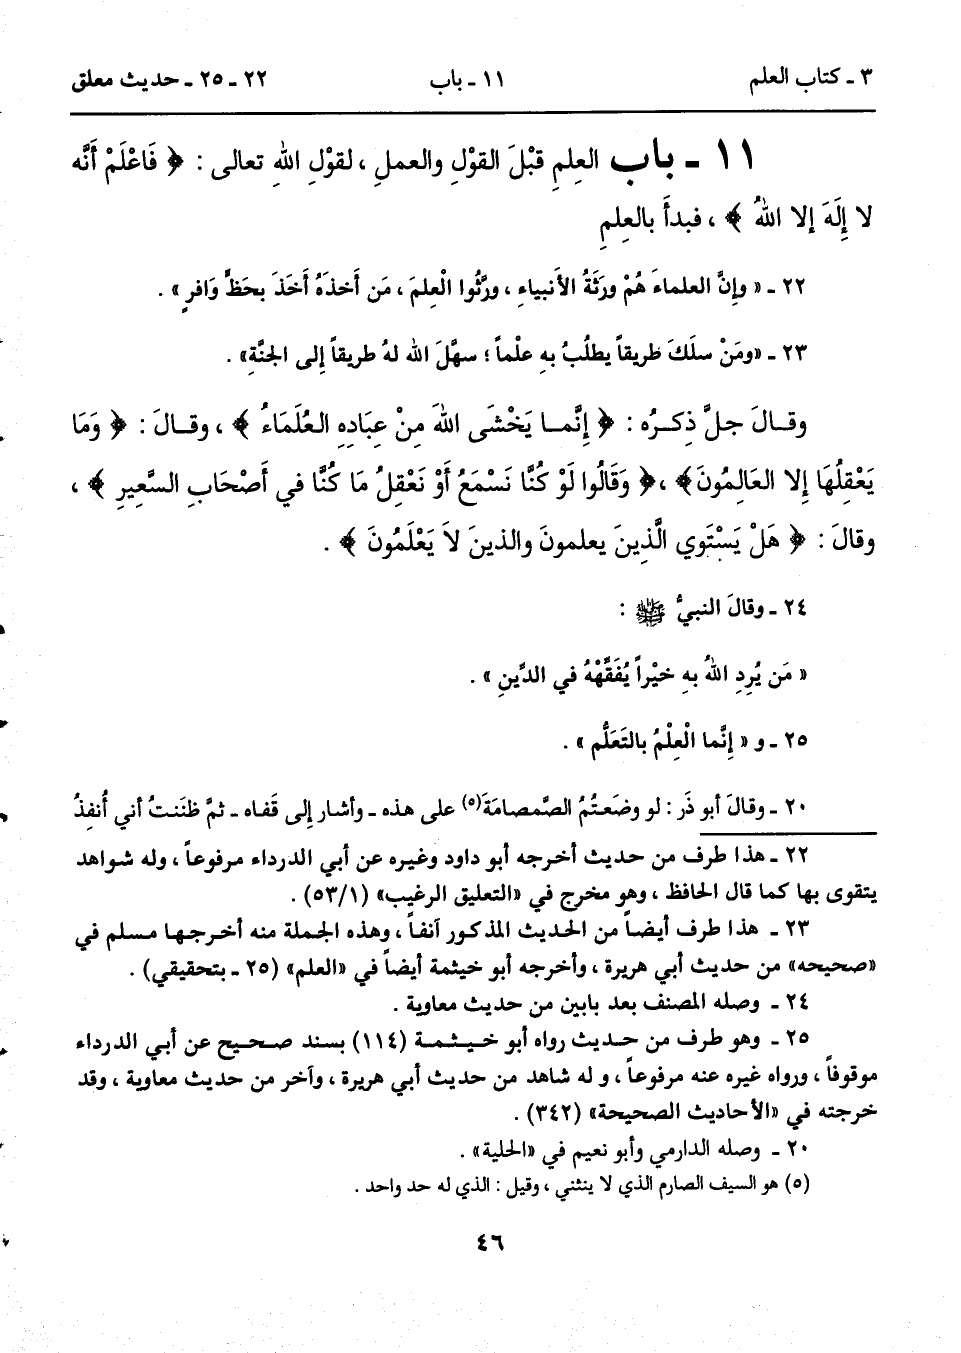 ٣ ـ كتاب العلم ١١ ـ باب ٢٢ ـ ٢٥ ـ حديث معلق
١١ ـ باب العِلمِ قبْلَ القوْلِ والعملِ ، لقوْلِ اللهِ تعالى : ﴿ فَاعْلَمْ أَنَّه
لا إِلَهَ إلا اللهُ ﴾ ، فبدأَ بالعِلمِ
٢٢ ـ « وإنَّ العلماءَ هُمْ ورَثَةُ الأنبياءِ ، ورَّثُوا الْعِلمَ ، مَن أخذهُ أخَذَ بحَظٍّ وَافرٍ » .
٢٣ ـ «ومَنْ سلَكَ طريقاً يطلُبُ بهِ علْماً ؛ سهَّلَ الله لهُ طريقاً إلى الجنَّةِ» .
وقـالَ جلَّ ذِكـرُه : ﴿ إنَّمـا يَخْشَى اللهَ مِنْ عِبَادِهِ العُلَمَاءُ ﴾ ، وقـالَ : ﴿ وَمَا
يَعْقِلُهَا إلا العَالِمُونَ﴾ ،﴿ وَقَالُوا لَوْ كُنَّا نَسْمَعُ أَوْ نَعْقِلُ مَا كُنَّا في أَصْحَابِ السَّعِيرِ ﴾ ،
وقالَ : ﴿ هَلْ يَسْتَوِي الَّذِينَ يعلمونَ والذينَ لاَ يَعْلَمُونَ ﴾ .
٢٤ ـ وقالَ النبيُّ ﷺ :
« مَن يُرِدِ اللهُ بهِ خيْراً يُفَقِّهْهُ في الدِّينِ » .
٢٥ ـ و « إِنَّما الْعِلْمُ بالتَعَلُّم » .
٢٠ ـ وقالَ أبو ذَر : لو وضَعتُمُ الصَّمصامَةَ(٥) على هذه ـ وأشار إلى قَفاه ـ ثمَّ ظنَنتُ أني أُنفِذُ
٢٢ ـ هذا طرف من حديث أخرجه أبو داود وغيره عن أبي الدرداء مرفوعاً ، وله شواهد
يتقوى بها كما قال الحافظ ، وهو مخرج في «التعليق الرغيب» (٥٣/١) .
٢٣ ـ هذا طرف أيضاً من الحديث المذكور آنفاً ، وهذه الجملة منه أخرجها مسلم في
«صحيحه» من حديث أبي هريرة ، وأخرجه أبو خيثمة أيضاً في «العلم» (٢٥ ـ بتحقيقي) .
٢٤ ـ وصله المصنف بعد بابين من حديث معاوية .
٢٥ ـ وهو طرف من حديث رواه أبو خيثمة (١١٤) بسند صحيح عن أبي الدرداء
موقوفاً ، ورواه غيره عنه مرفوعاً ، و له شاهد من حديث أبي هريرة ، وآخر من حديث معاوية ، وقد
خرجته في «الأحاديث الصحيحة» (٣٤٢) .
٢٠ ـ وصله الدارمي وأبو نعيم في «الحلية» .
(٥) هو السيف الصارم الذي لا ينثني ، وقيل : الذي له حد واحد .
٤٦